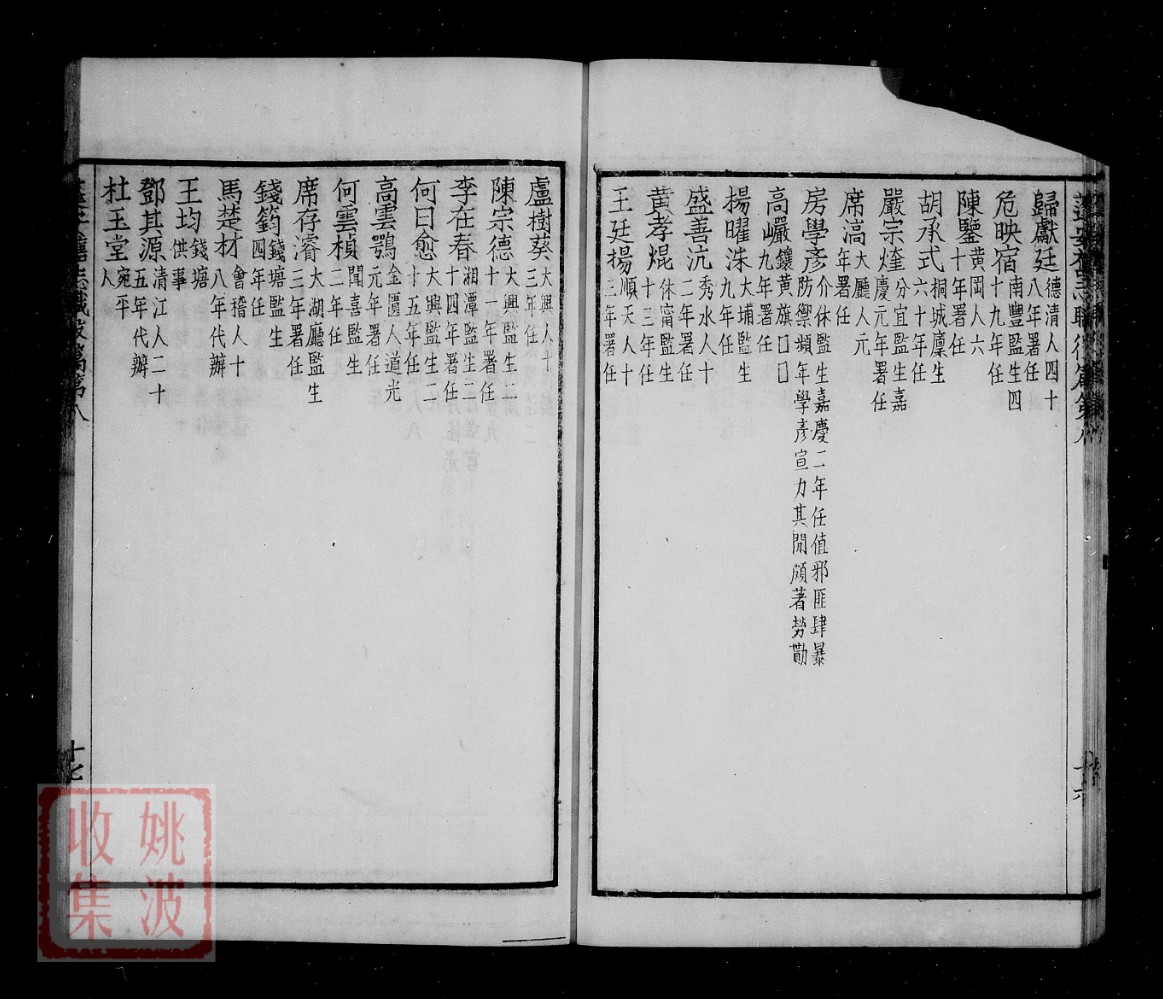 歸獻廷德清人四十八年署任
危映宿南豐監生四十九年任
陳鑒黃岡人六十年署任
胡承弍桐城廩生六十年任
嚴宗煃分宜監生嘉慶元年署任
席滈大廳人元年署任
房學彦介休監生嘉慶二年任值邪匪肆暴防禦頻年學彦宣力其閒頗著勞勩
高巗鑲黃旗口口九年署任
揚曜洙大埔監生九年任
盛善沆秀水人十二年署任
黃孝焜休甯監生十三年任
王廷揚順天人十三年署任
盧樹葵大興人十三年任
陳宗德大興監生二十一年署任
李在春湘潭監生二十四年署任
何曰愈大興監生二十五年任
高雲鶚金匱人道光元年署任
何雲楨聞喜監生二年任
席存濬大湖廳監生三年署任
錢筠錢塘監生四年任
馬楚材會稽人十八年代辦
王均錢塘供事
鄧其源清江人二十五年代辦
杜玉堂宛平人
職孜篇第八
十七
十六
姚波
收集